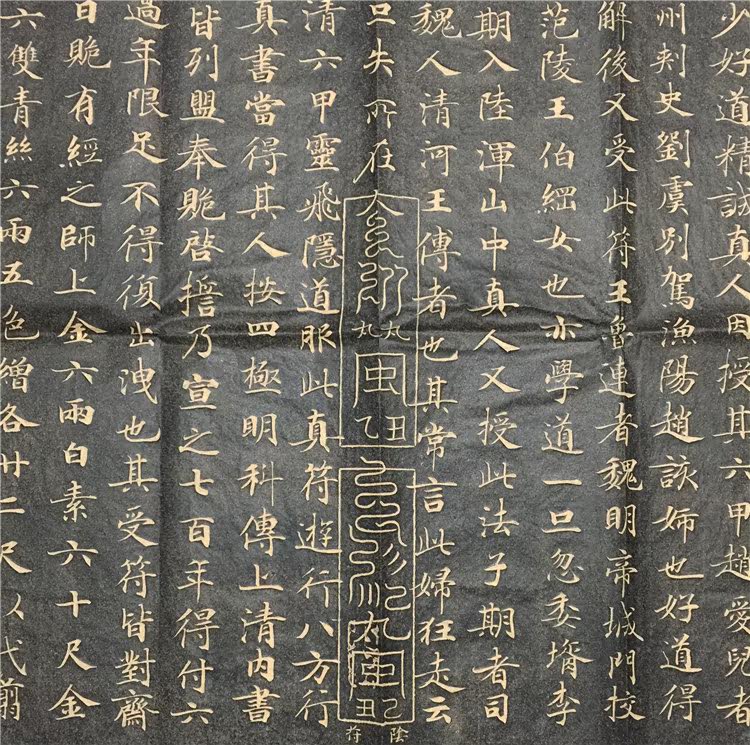 少好道精誠真人因授其六甲趙愛兒者
州刾史劉虞別駕漁陽趙該姉也好道得
解後又受此符王魯連者魏明帝城門挍
范陵王伯綱女也亦學道一旦忽委壻李
期入陸渾山中真人又授此法子期者司
魏人清河王傳者也其常言此婦狂走云
旦失所在
陰符
清六甲靈飛隱道服此真符遊行八方行
真書當得其人按四極明科傳上清內書
皆列盟奉貺啓擔乃宣之七百年得付六
過年限足不得復出洩也其受符皆對齋
日貺有經之師上金六兩白素六十尺金
六雙青絲六兩五色繒各廿二尺以代翦